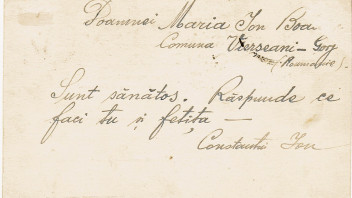 Doamnei Maria Ion Boa
Comuna Vierseani - Gorj
(Roumanie)
Sunt sănătos. Răspunde ce
faci tu și fetița —
Constantin Ion